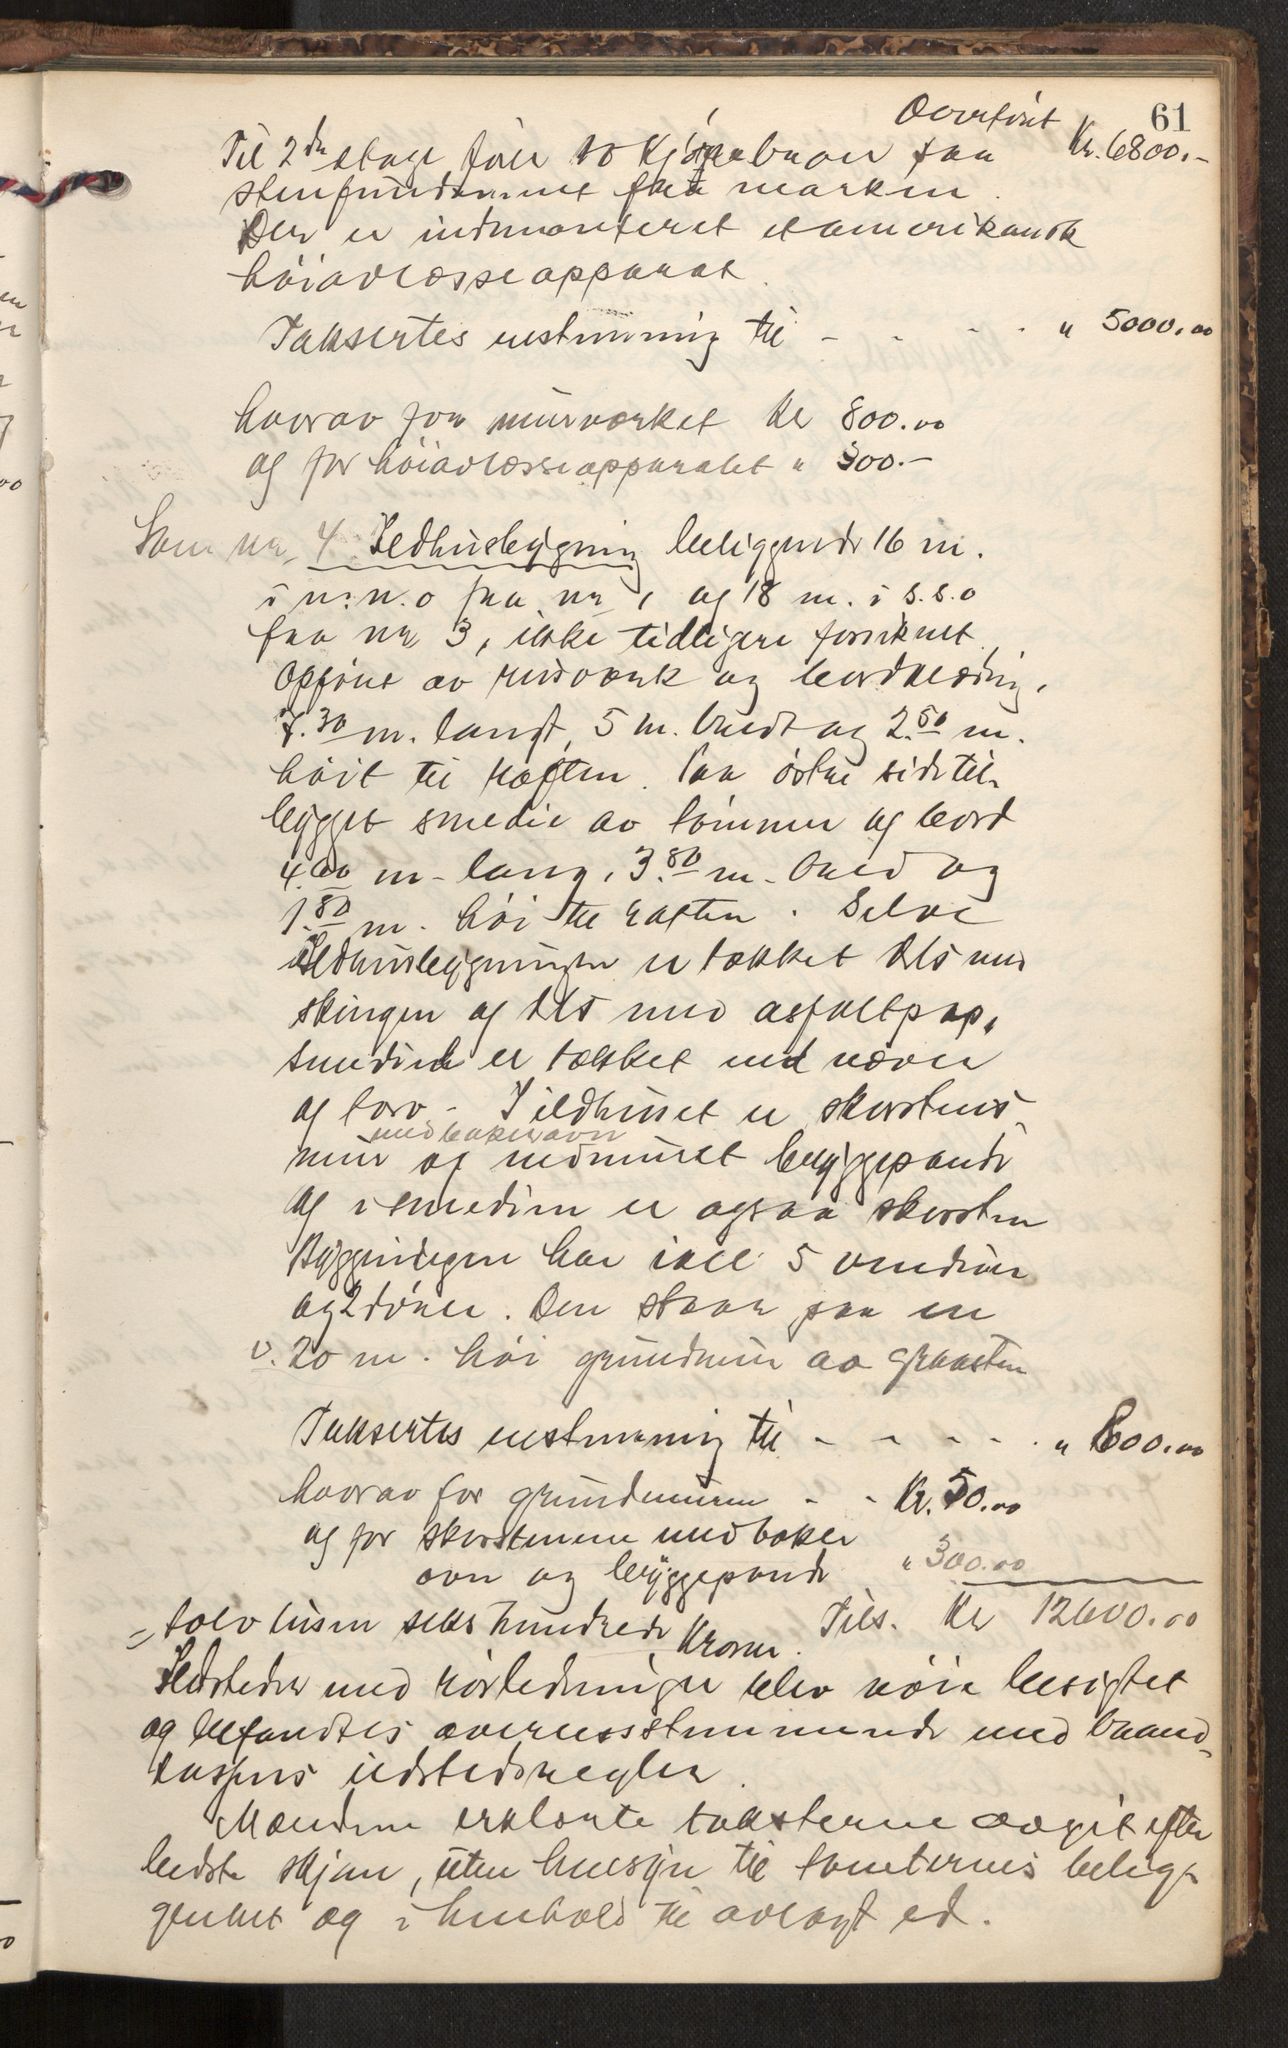 61
Overført
Til 2den etage fører to kjørebroer paa Kr. 6800.-
stenfundament fra marken.
Der er indmonteret et amerikansk
høiavlæsseapparat.
Taksertes enstemmig til - - - - " 5000.00
hvorav for murverket Kr 800.00
og for høiavlæsseapparatet " 300.-
Som nr. 4 Ildhusbygning beliggende 16 m.
i n.n.o fra nr 1 og 18 m. i s.s.o
fra nr 3, ikke tidligere forsikret,
opført av reisverk og bordklædning,
7.30 m. langt, 5 m. bredt og 2.50 m.
høit til raften. Paa østre side til-
bygget smedie av tømmer og bord
4.00 m. lang, 3.80 m. bred og
1.80 m. høi til raften. Selve
ildhusbygningen er tækket dels med
skingen og dels med asfaltpap,
smedien er tækket med næver
og torv - I ildhuset er skorstens-
med bakerovn
mur og indmuret bryggepande
og i smedien er ogsaa skorsten
Bygningen har ialt 5 vinduer
og 2 dører. Den staar paa en
0.20 m. høi grundmur av graasten
Taksertes enstemmig til - - - - - " 800.00
hvorav for grundmuren - - Kr. 50.00
og for skorstenene med baker
ovn og bryggepande " 300.00
= tolv tusen seks hundrede Kroner. Tils. Kr 12600.00
Ildsteder med rørledninger blev nøie besigtet
og befandtes overensstemmende med brand-
kassens ildstedsregler.
Mændene erklærte taksterne avgit efter
bedste skjøn, uten hensyn til tomternes belig-
genhet og i henhold til avlagt ed.